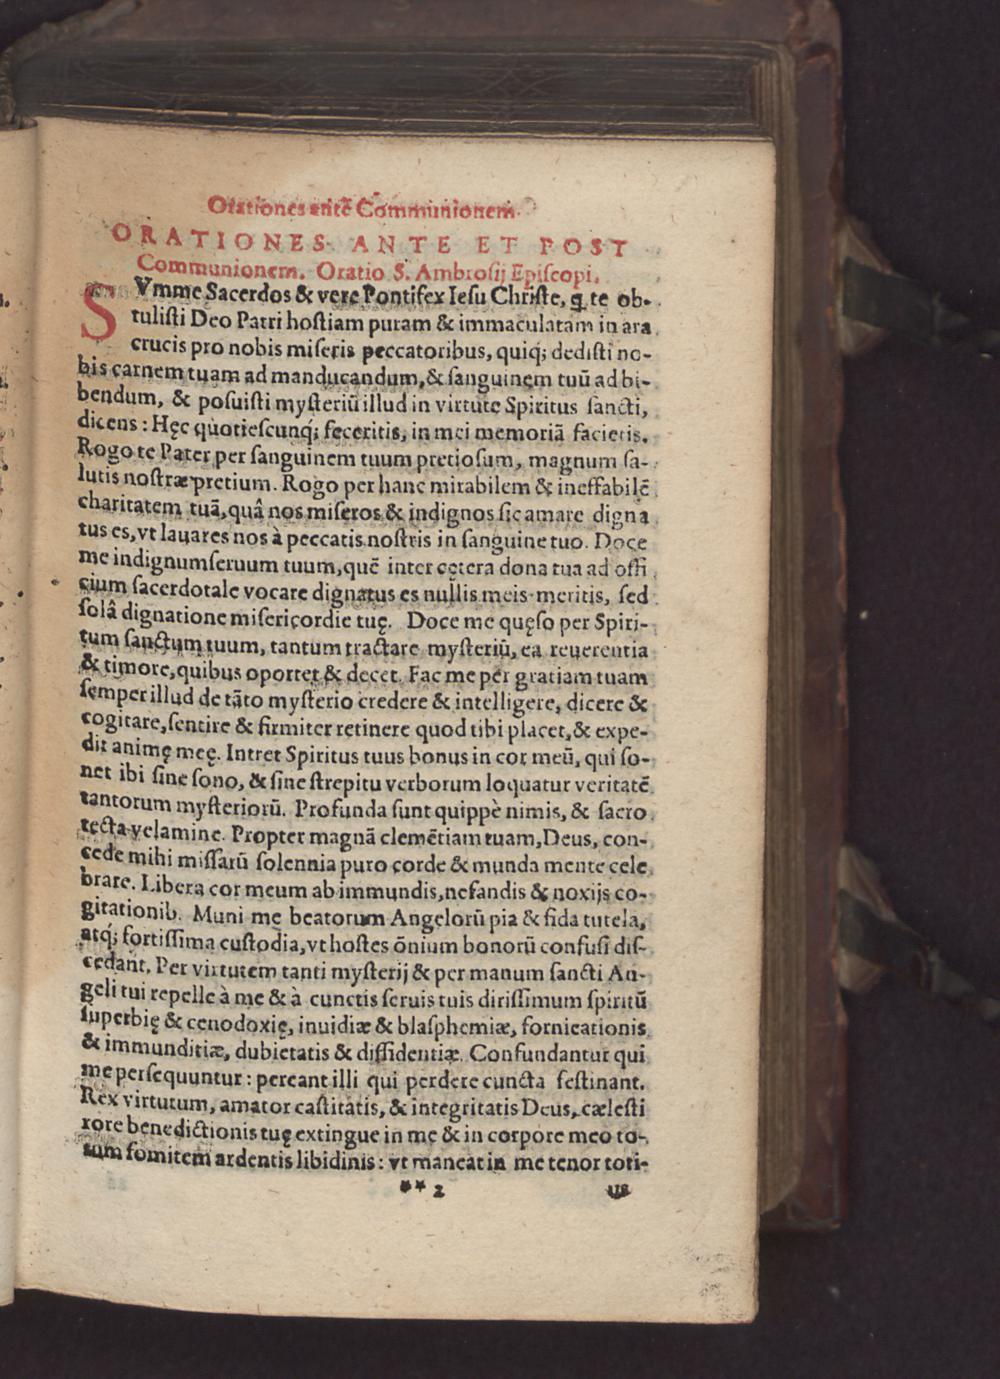 Orationes antē Communionem.
ORATIONES ANTE ET POST
Communionem. Oratio S. Ambrosij Episcopi.
SVmme Sacerdos & vere Pontifex Iesu Christe, q te ob-
tulisti Deo Patri hostiam puram & immaculatam in ara
crucis pro nobis miseris peccatoribus, quiq; dedisti no-
bis carnem tuam ad manducandum, & sanguinem tuū ad bi-
bendum, & posuisti mysteriū illud in virtute Spiritus sancti,
dicens: Hęc quotiescunq; feceritis, in mei memoriā facietis.
Rogo te Pater per sanguinem tuum pretiosum, magnum sa-
lutis nostræ pretium. Rogo per hanc mirabilem & ineffabilē
charitatem tuā, quâ nos miseros & indignos sic amare digna
tus es, vt lauares nos à peccatis nostris in sanguine tuo. Doce
me indignum seruum tuum, quē inter cętera dona tua ad offi
cium sacerdotale vocare dignatus es nullis meis meritis, sed
solâ dignatione misericordie tuę. Doce me quęso per Spiri-
tum sanctum tuum, tantum tractare mysteriū, ea reuerentia
& timore, quibus oportet & decet. Fac me per gratiam tuam
semper illud de tāto mysterio credere & intelligere, dicere &
cogitare, sentire & firmiter retinere quod tibi placet, & expe-
dit animę meę. Intret Spiritus tuus bonus in cor meū, qui so-
net ibi sine sono, & sine strepitu verborum loquatur veritatē
tantorum mysteriorū. Profunda sunt quippè nimis, & sacro
tecta velamine. Propter magnā clemētiam tuam, Deus, con-
cede mihi missarū solennia puro corde & munda mente cele
brare. Libera cor meum ab immundis, nefandis & noxijs co-
gitationib. Muni me beatorum Angelorū pia & fida tutela,
atq; fortissima custodia, vt hostes ōnium bonorū confusi dis-
cedant. Per virtutem tanti mysterij & per manum sancti An-
geli tui repelle à me & à cunctis seruis tuis dirissimum spiritū
superbię & cenodoxię, inuidiæ & blasphemiæ, fornicationis
& immunditiæ, dubietatis & diffidentiæ. Confundantur qui
me persequuntur: pereant illi qui perdere cuncta festinant.
Rex virtutum, amator castitatis, & integritatis Deus, cælesti
rore benedictionis tuę extingue in me & in corpore meo to-
tum fomitem ardentis libidinis: vt maneat in me tenor toti-
** 2 us